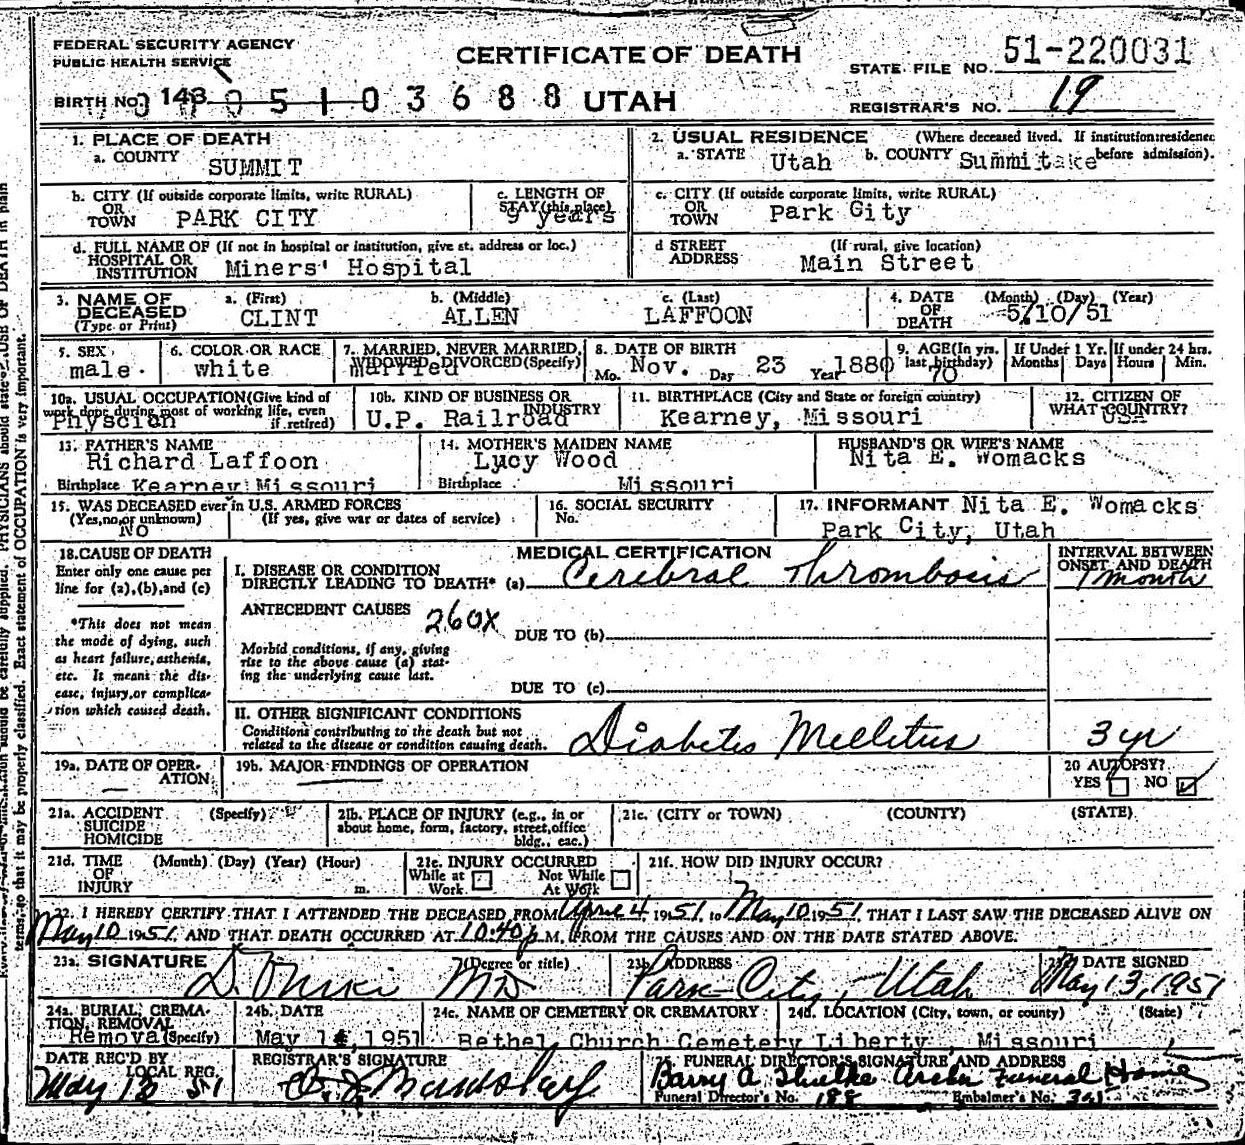 FEDERAL SECURITY AGENCY
PUBLIC HEALTH SERVICE
CERTIFICATE OF DEATH
STATE FILE NO. 51-220031
BIRTH NO. 143 051 03688 UTAH
REGISTRAR'S NO. 19
1. PLACE OF DEATH
a. COUNTY SUMMIT
2. USUAL RESIDENCE (Where deceased lived. If institution: residence before admission).
a. STATE Utah b. COUNTY Summit
b. CITY (If outside corporate limits, write RURAL)
OR
TOWN PARK CITY
c. LENGTH OF
STAY (this place)
9 years
c. CITY (If outside corporate limits, write RURAL)
OR
TOWN Park City
d. FULL NAME OF (If not in hospital or institution, give st. address or loc.)
HOSPITAL OR
INSTITUTION Miners' Hospital
d STREET (If rural, give location)
ADDRESS Main Street
3. NAME OF
DECEASED
(Type or Print)
a. (First) b. (Middle) c. (Last)
CLINT ALLEN LAFFOON
4. DATE (Month) (Day) (Year)
OF
DEATH 5/10/51
5. SEX
male
6. COLOR OR RACE
white
7. MARRIED, NEVER MARRIED,
WIDOWED, DIVORCED (Specify)
married
8. DATE OF BIRTH
Mo. Nov. Day 23 Year 1880
9. AGE (In yrs.
last birthday)
70
If Under 1 Yr.
Months Days
If under 24 hrs.
Hours Min.
10a. USUAL OCCUPATION (Give kind of
work done during most of working life, even
if retired)
Physcion
10b. KIND OF BUSINESS OR
INDUSTRY
U.P. Railroad
11. BIRTHPLACE (City and State or foreign country)
Kearney, Missouri
12. CITIZEN OF
WHAT COUNTRY?
USA
13. FATHER'S NAME
Richard Laffoon
Birthplace Kearney Missouri
14. MOTHER'S MAIDEN NAME
Lucy Wood
Birthplace Missouri
HUSBAND'S OR WIFE'S NAME
Nita E. Womacks
15. WAS DECEASED ever in U.S. ARMED FORCES
(Yes, no, or unknown) (If yes, give war or dates of service)
NO
16. SOCIAL SECURITY
No.
17. INFORMANT Nita E. Womacks
Park City, Utah
18. CAUSE OF DEATH
Enter only one cause per
line for (a), (b), and (c)
*This does not mean
the mode of dying, such
as heart failure, asthenia,
etc. It means the dis-
ease, injury, or complica-
tion which caused death.
MEDICAL CERTIFICATION
INTERVAL BETWEEN
ONSET AND DEATH
I. DISEASE OR CONDITION
DIRECTLY LEADING TO DEATH* (a) Cerebral Thrombosis 1 month
ANTECEDENT CAUSES 260X
DUE TO (b)
Morbid conditions, if any, giving
rise to the above cause (a) stat-
ing the underlying cause last.
DUE TO (c)
II. OTHER SIGNIFICANT CONDITIONS
Conditions contributing to the death but not
related to the disease or condition causing death.
Diabetes Mellitus 3 yr
19a. DATE OF OPER-
ATION:
19b. MAJOR FINDINGS OF OPERATION
20 AUTOPSY?
YES NO
21a. ACCIDENT (Specify)
SUICIDE
HOMICIDE
21b. PLACE OF INJURY (e.g., in or
about home, form, factory, street, office
bldg., eac.)
21c. (CITY or TOWN) (COUNTY) (STATE)
21d. TIME (Month) (Day) (Year) (Hour)
OF
INJURY m.
21e. INJURY OCCURRED
While at Work Not While At Work
21f. HOW DID INJURY OCCUR?
22. I HEREBY CERTIFY THAT I ATTENDED THE DECEASED FROM April 4 1951, to May 10 1951, THAT I LAST SAW THE DECEASED ALIVE ON
May 10 1951, AND THAT DEATH OCCURRED AT 10:40 p M. FROM THE CAUSES AND ON THE DATE STATED ABOVE.
23a. SIGNATURE (Degree or title) 23b. ADDRESS DATE SIGNED
MD Park City, Utah May 13, 1951
24a. BURIAL, CREMA-
TION, REMOVAL
Removal (Specify)
24b. DATE
May 14, 1951
24c. NAME OF CEMETERY OR CREMATORY
Bethel Church Cemetery
24d. LOCATION (City, town, or county) (State)
Liberty, Missouri
DATE REC'D BY
LOCAL REG.
May 13 51
REGISTRAR'S SIGNATURE
25. FUNERAL DIRECTOR'S SIGNATURE AND ADDRESS
Barry A. Funeral Home
Funeral Director's No. 188 Embalmer's No.